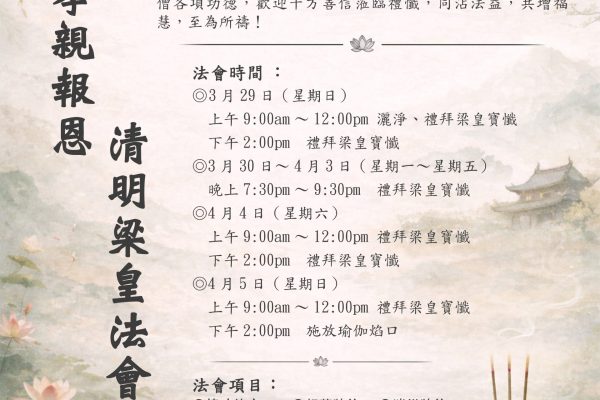 孝親報恩
清明梁皇法會
僧各項功德，歡迎十方喜信蒞臨禮懺，同沾法益，共增福
慧，至為所禱！
法會時間：
◎3月29日（星期日）
上午9:00am～12:00pm 灑淨、禮拜梁皇寶懺
下午2:00pm 禮拜梁皇寶懺
◎3月30日～4月3日（星期一～星期五）
晚上7:30pm～9:30pm 禮拜梁皇寶懺
◎4月4日（星期六）
上午9:00am～12:00pm 禮拜梁皇寶懺
下午2:00pm 禮拜梁皇寶懺
◎4月5日（星期日）
上午9:00am～12:00pm 禮拜梁皇寶懺
下午2:00pm 施放瑜伽焰口
法會項目：